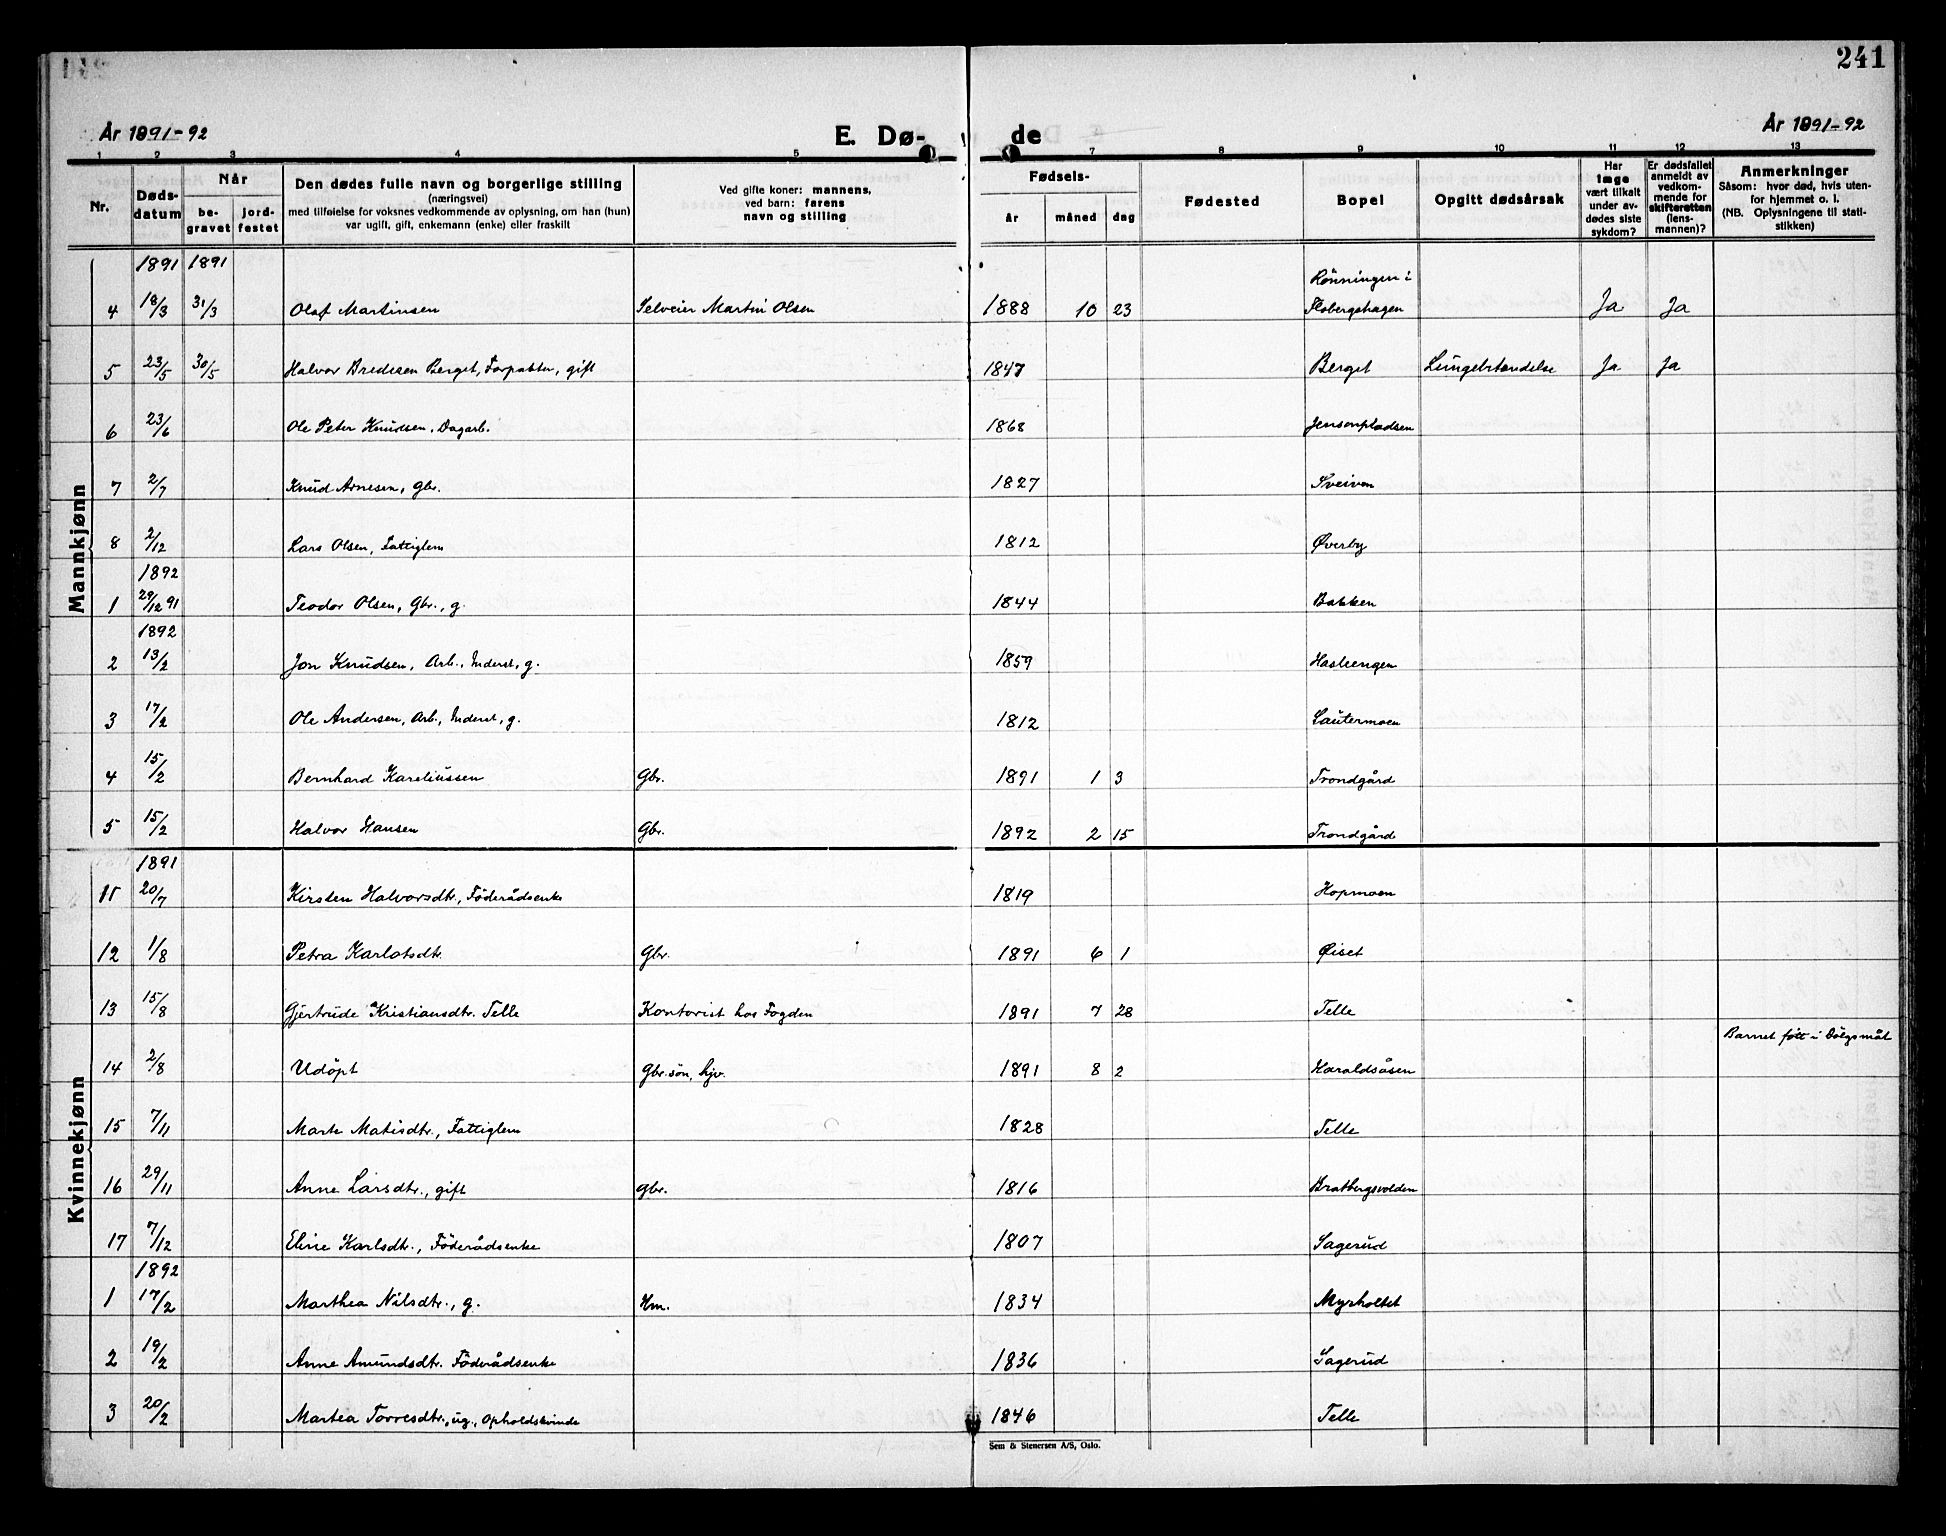 241
År 1891-92
E. Dø-
de
År 1891-92
1 2 3 4 5 7 8 9 10 11 12 13
Nr.
Døds-
datum
Når
be-
gravet
jord-
festet
Den dødes fulle navn og borgerlige stilling
(næringsvei)
med tilføielse for voksnes vedkommende av oplysning, om han (hun)
var ugift, gift, enkemann (enke) eller fraskilt
Ved gifte koner: mannens,
ved barn: farens
navn og stilling
Fødsels-
år
måned
dag
Fødested
Bopel
Opgitt dødsårsak
Har
læge
vært tilkalt
under av-
dødes siste
sykdom?
Er dødsfallet
anmeldt av
vedkom-
mende for
skifteretten
(lens-
mannen)?
Anmerkninger
Såsom: hvor død, hvis uten-
for hjemmet o. l.
(NB. Oplysningene til stati-
stikken)
Mannkjønn
1891 1891
Rönningen i
4 18/3 31/3 Olaf Martinsen Selveier Martin Olsen 1888 10 23 Flobergshagen Ja Ja
5 23/5 30/5 Halvor Bredesen Berget, Forpakter, gift 1847 Berget Lungebetændelse Ja Ja
6 23/6 Ole Peter Knudsen, Dagarb. 1868 Jensonpladsen
7 2/7 Knud Arnesen, Gbr. 1827 Sveiven
8 2/12 Lars Olsen, Fattiglem 1812 Øverby
1892
1 29/12 91 Teodor Olsen, Gbr., g. 1844 Bakken
1892
2 13/2 Jon Knudsen, Arb., Inderst, g. 1859 Hasleengen
3 17/2 Ole Andersen, Arb., Inderst, g. 1812 Sautermoen
4 15/2 Bernhard Kareliussen Gbr. 1891 1 3 Trondgård
5 15/2 Halvor Hansen Gbr. 1892 2 15 Trondgård
Kvinnekjønn
1891
11 20/7 Kirsten Halvorsdtr., Föderådsenke 1819 Hopmoen
12 1/8 Petra Karlotsdtr. Gbr. 1891 6 1 Øiset
13 15/8 Gjertrude Kristiansdtr. Telle Kontorist hos Fogden 1891 7 28 Telle
Barnet født i Dölgsmål
14 2/8 Udöpt Gbr.sön, hjv. 1891 8 2 Haraldsåsen
15 7/11 Marte Matisdtr., Fattiglem 1828 Telle
16 29/11 Anne Larsdtr., gift gbr. 1816 Bratbergsvolden
17 7/12 Eline Karlsdtr., Föderådsenke 1807 Sagerud
1892
1 17/2 Marthea Nilsdtr., g. Hm. 1834 Myrholtet
2 19/2 Anne Amundsdtr. Föderådsenke 1836 Sagerud
3 20/2 Martea Torresdtr., ug., Opholdskvinde 1846 Telle
Sem & Stenersen A/S, Oslo.